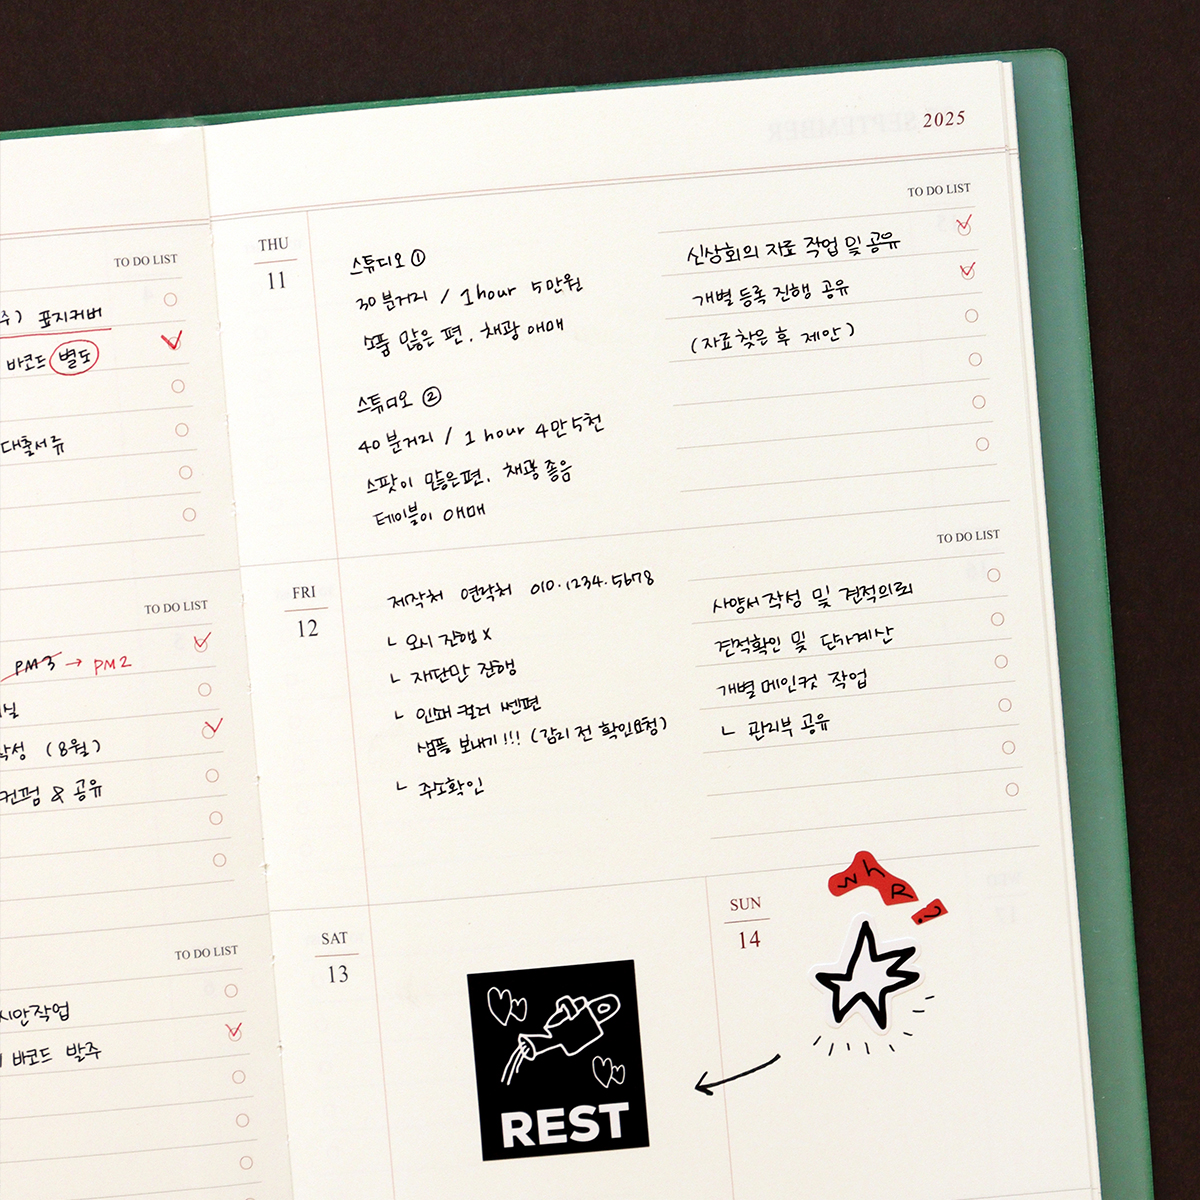 2025
TO DO LIST
주) 표지커버
바코드 별도
대출서류
TO DO LIST
PM3 → PM2
작성 (8월)
컨펌 & 공유
TO DO LIST
시안작업
바코드 발주
THU
11
스튜디오 ①
30분거리 / 1hour 5만원
소품 많은 편. 채광 애매
스튜디오 ②
40분거리 / 1 hour 4만5천
스팟이 많은편. 채광 좋음
테이블이 애매
TO DO LIST
신상회의 자료 작업 및 공유
개별 등록 진행 공유
(자료 찾은 후 제안)
FRI
12
제작처 연락처 010.1234.5678
ㄴ 오시 진행 X
ㄴ 재단만 진행
ㄴ 인쇄 컬러 쎈편
샘플 보내기!!! (감리 전 확인요청)
ㄴ 주소확인
TO DO LIST
사양서 작성 및 견적의뢰
견적확인 및 단가계산
개별 메인컷 작업
ㄴ 관리부 공유
SAT
13
REST
SUN
14